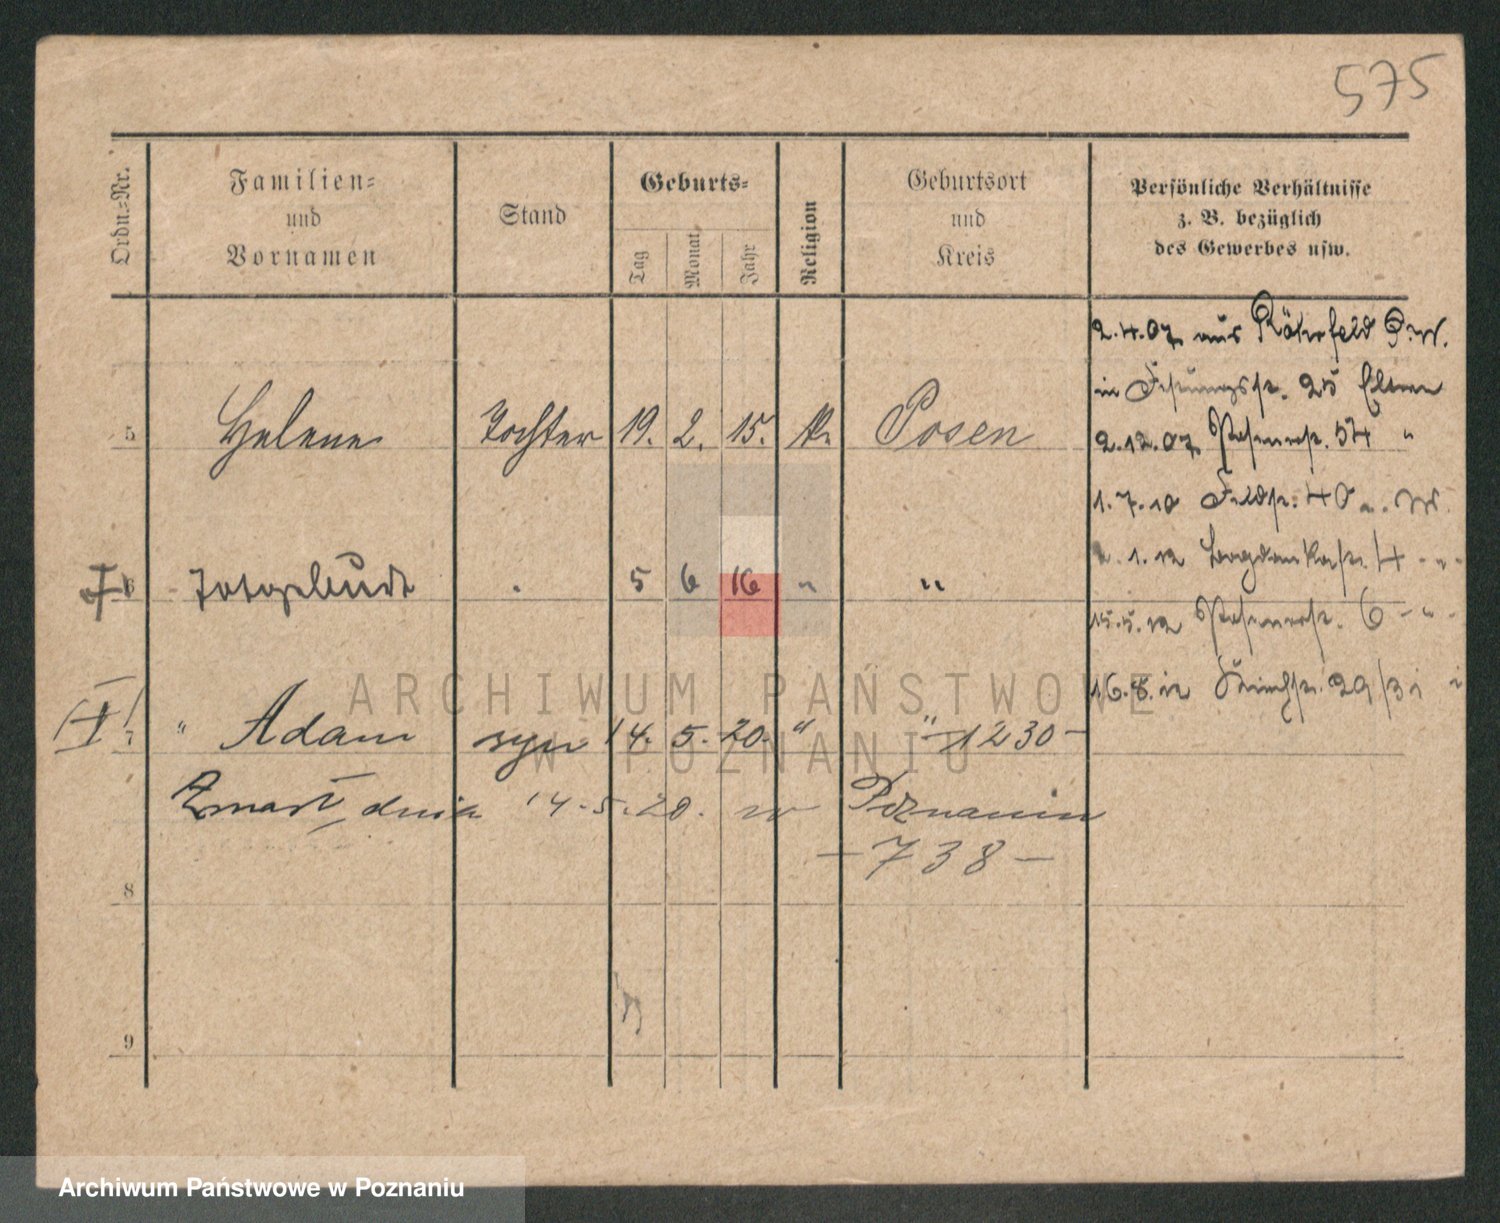 575
Ordn.-Nr.
Familien-
und
Vornamen
Stand
Geburts-
Tag
Monat
Jahr
Religion
Geburtsort
und
Kreis
Persönliche Verhältnisse
z. B. bezüglich
des Gewerbes usw.
5 Helene Tochter 19. 2. 15. k. Posen
6 Totgeburt 5 6 16 " "
7 " Adam syn 14. 5. 20. " " -1230-
Zmarł dnia 14.5.20. w Poznaniu
-738-
8
9
2.4.07 aus
in 25 Eltern
2.12.07 Posenerstr. 54 "
1.7.10 Feldstr. 40
1.12 Bogdankastr. 4 - " -
15.5.12 Posenerstr. 6 - " -
16.8.12 29/31
ARCHIWUM PAŃSTWOWE
W POZNANIU
Archiwum Państwowe w Poznaniu